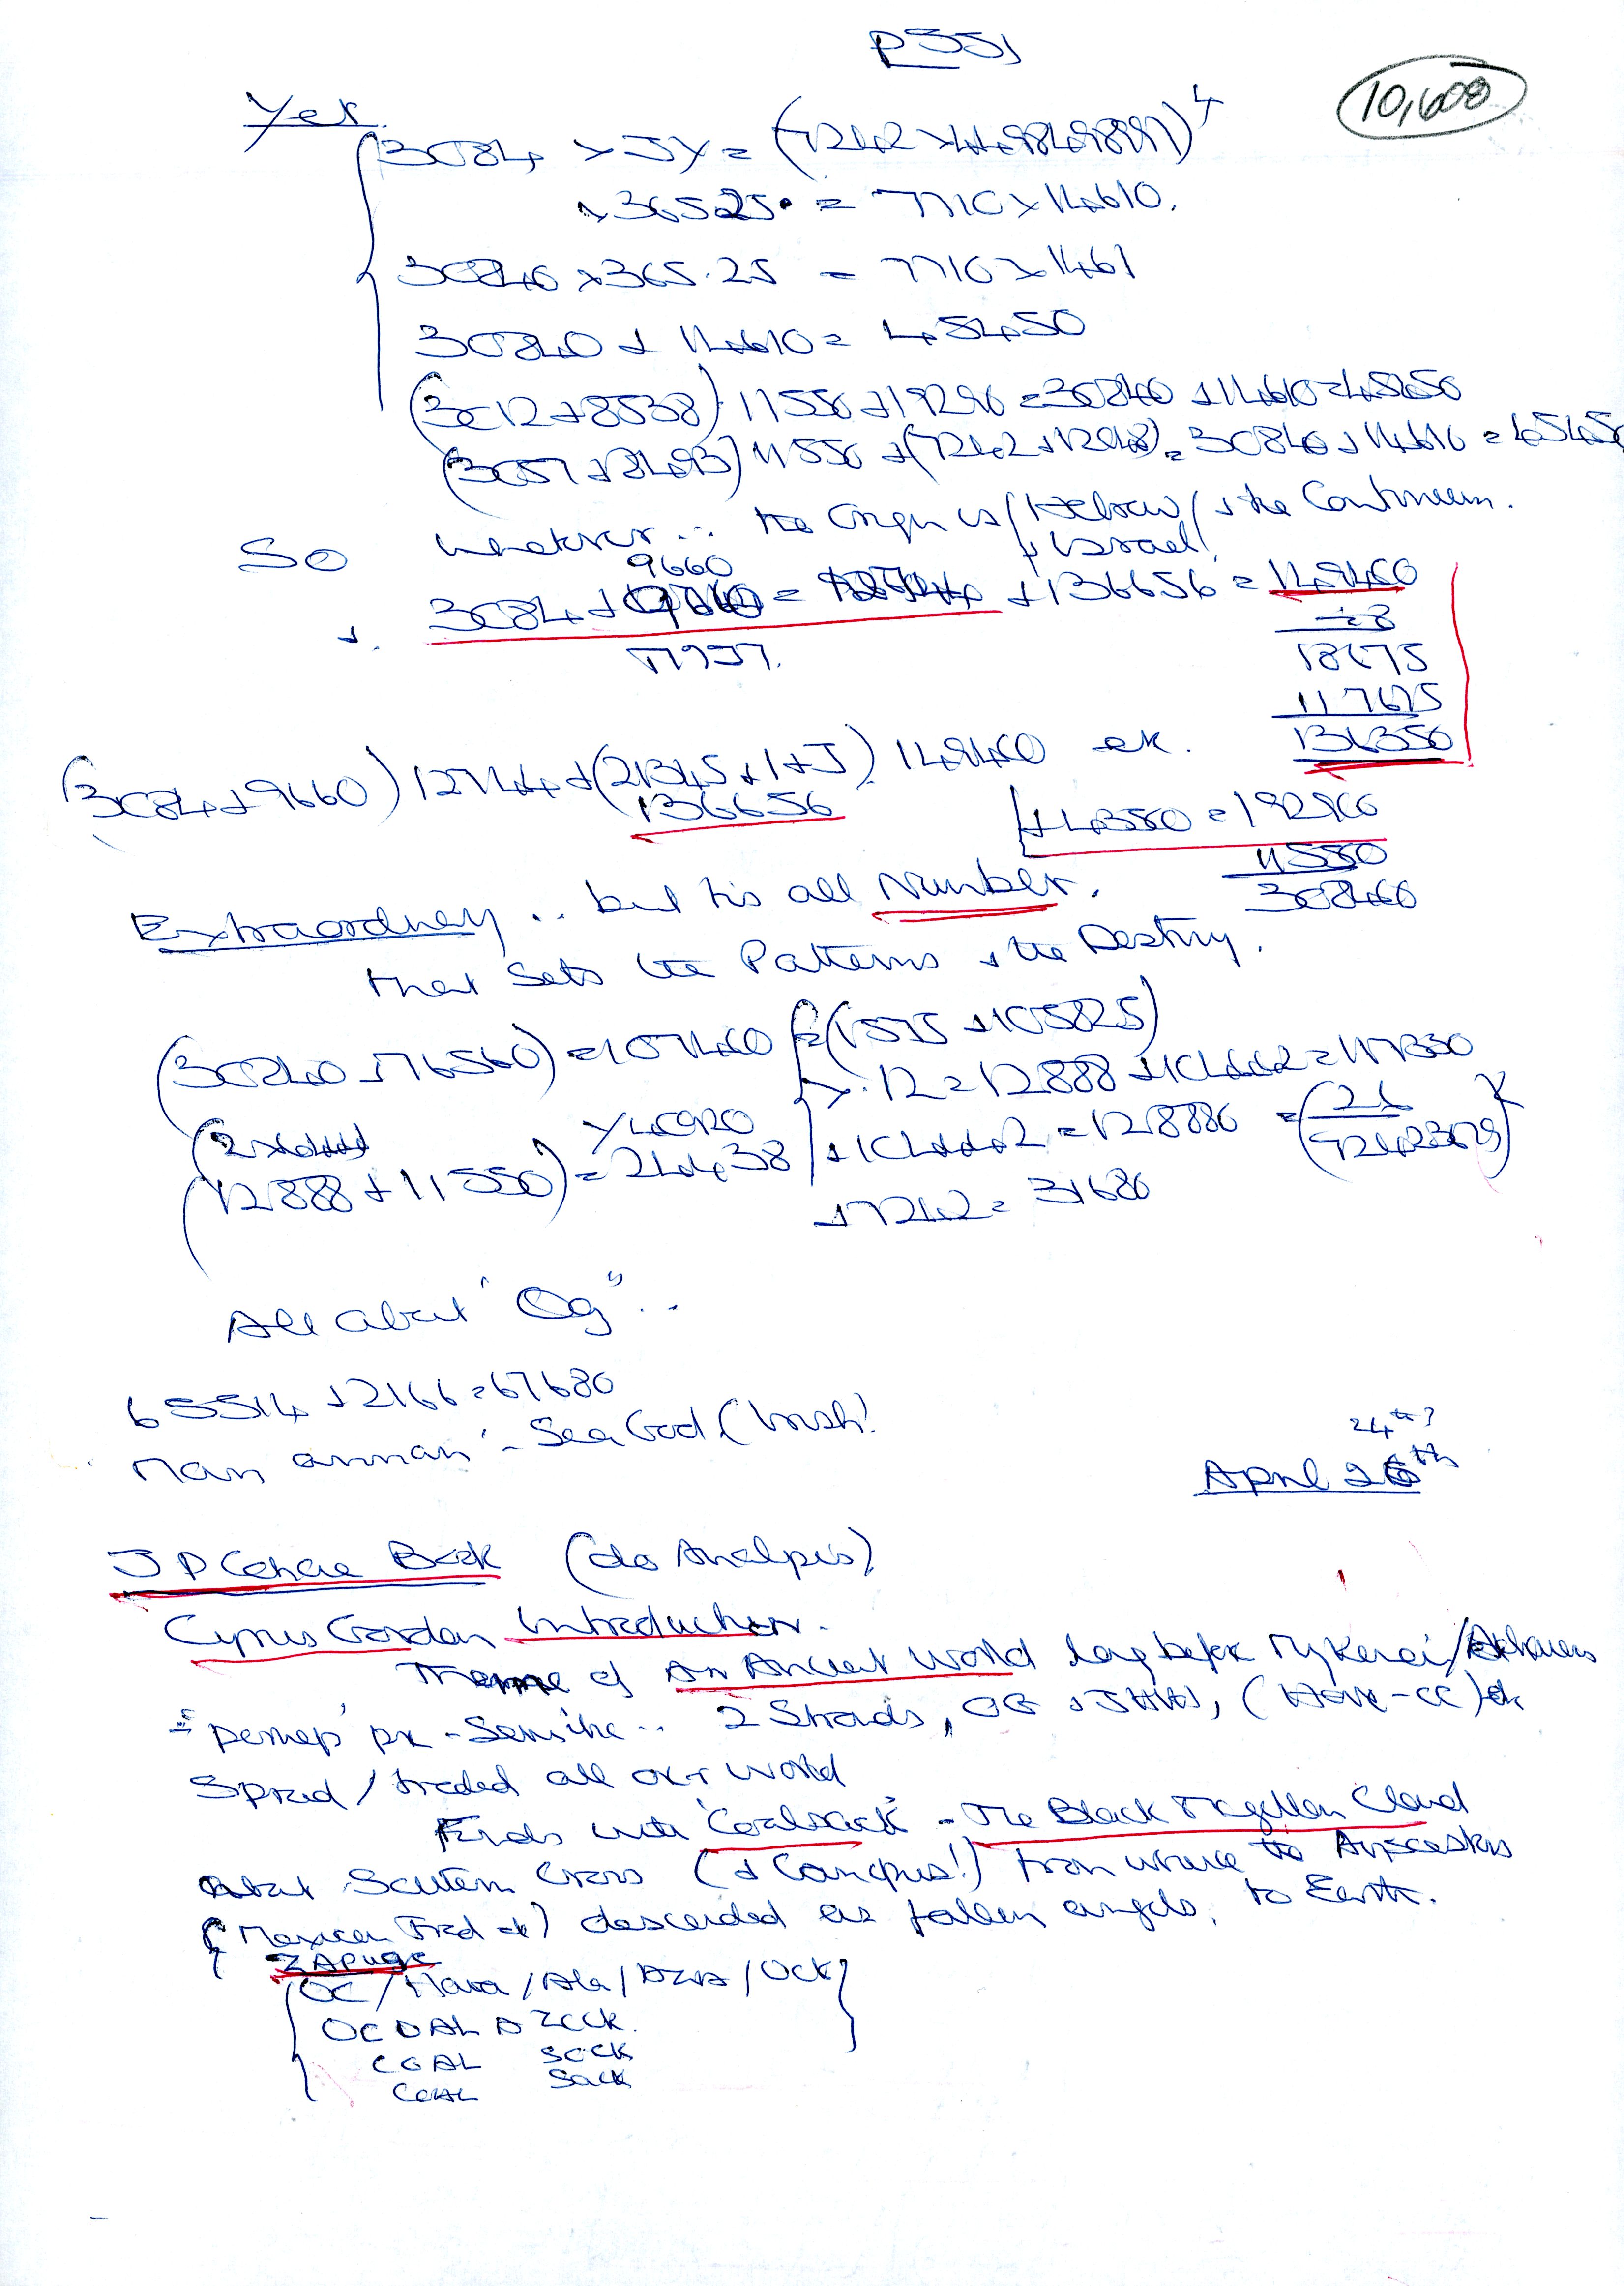 P551
10,600
Yet
3084 × JY = (7242 × 44.9849897)4
× 36525 = 7710 × 14610.
30840 × 365.25 = 7710 × 1461
30840 + 14610 = 45450
(3012 + 8538) 11550 + 19290 = 30840 + 14610 = 45450
(3057 + 8493) 11550 + (7242 + 12048) = 30840 + 14610 = 45450
So whatever... the Origin is / Hebrew / & the Continuum.
+ Israel!
9660
3084 + = + 136656 = 149400
÷ 8
18675
117675
136350
(3084 + 9660) 12744 + (21345 + 1 + J) 149400 etc.
136656
+ 4350 = 192900
11550
308400
Extraordinary .. but tis all Number.
that sets the Patterns & the Destiny.
(30840 + 76560) = 107400 = (1575 + 105825)
× .12 = 12888 + 104442 = 117330
(12888 + 11550) = 24438
+ 7242 = 31680
All about "Og"..
65514 + 2166 = 67680
Man annan' - Sea God (Irish!
24th?
April 26th
J P Cohane Book (do Analysis)
Cyrus Gordon Introduction.
Theme of An Ancient World long before Mykenai /
= perhaps' pre-Semitic .. 2 Strands, OG & JHVH, (Hove-CC) etc
Spread / traded all over world
Ends with 'Coalsack' - The Black Magellan Cloud
about Southern Cross (& Canopus!) from where the Ancestors
(Mexican Trad etc) descended as fallen angels, to Earth.
OC / Hava / Ala / AZA / OCK
OC O AL A ZOCK.
COAL SOCK
COAL SACK